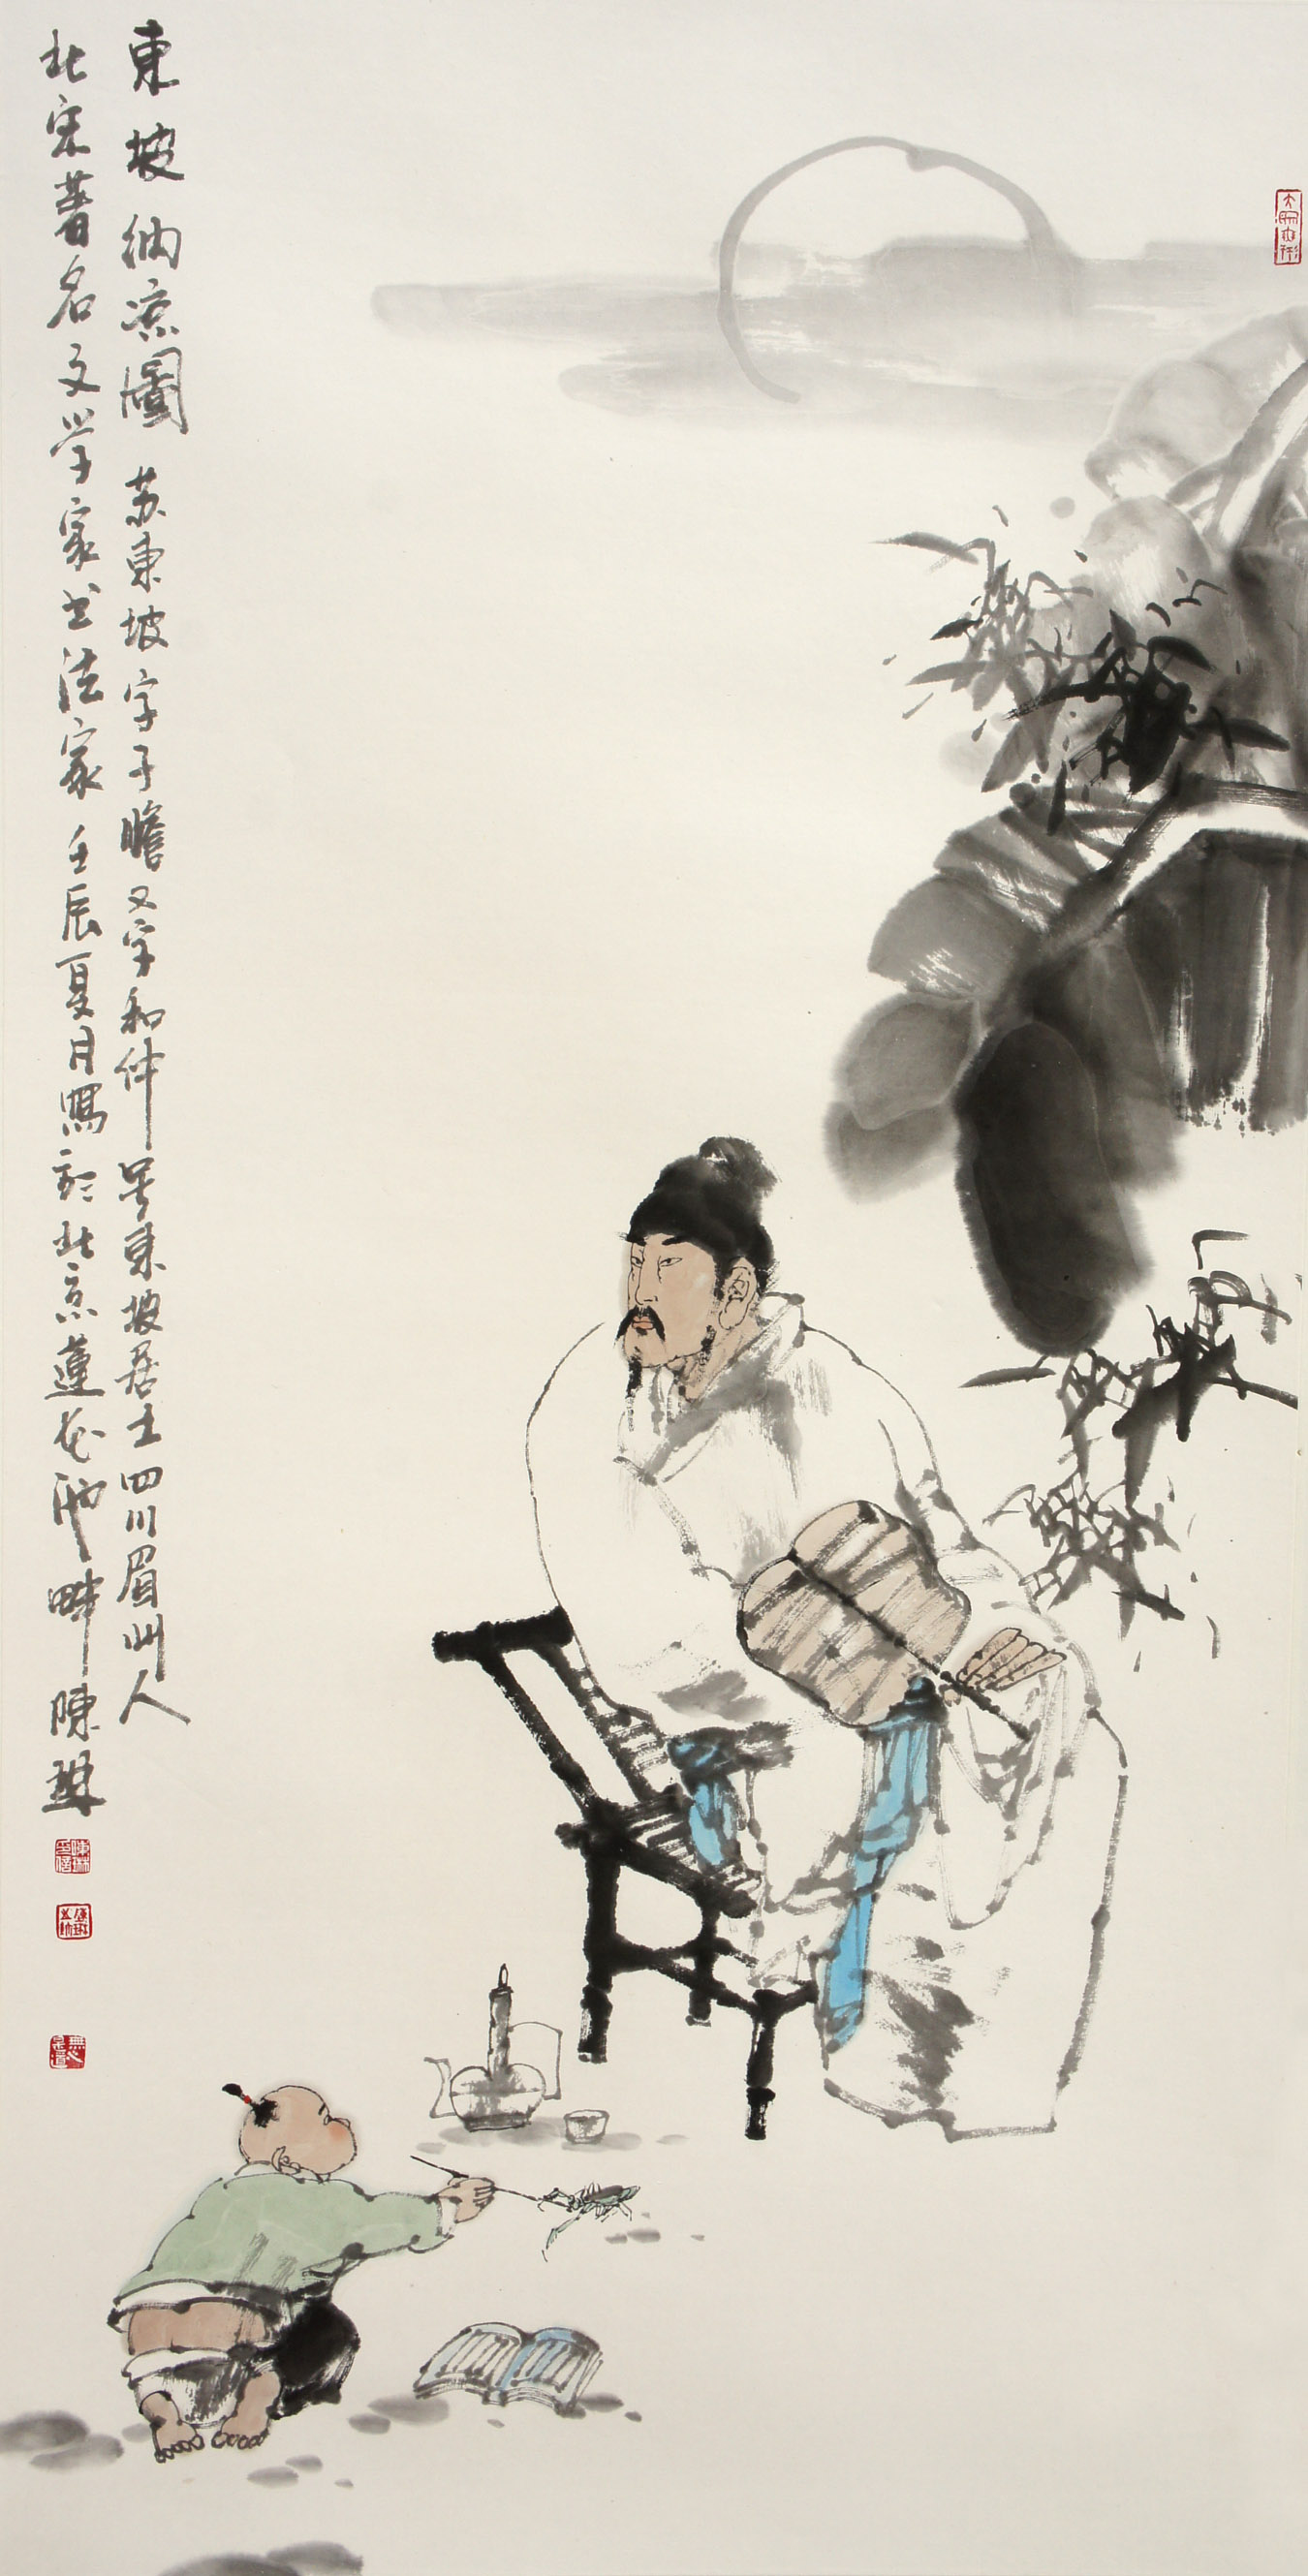 東坡纳凉圖 苏東坡字子瞻又字和仲号東坡居士四川眉州人
北宋著名文学家书法家 壬辰夏月寫於北京蓮花池畔 陳琳